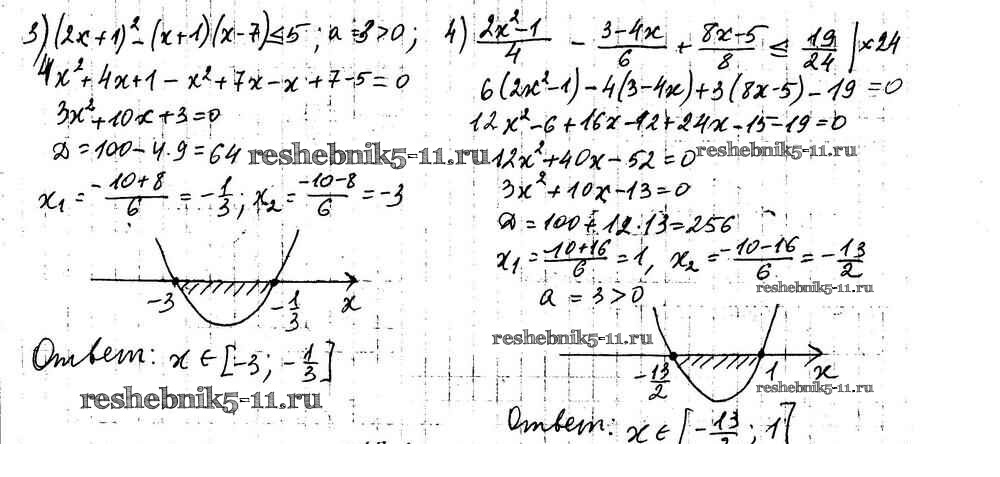 3) (2x+1)² - (x+1)(x-7) ≤ 5 ; a = 3 > 0 ;
4x² + 4x + 1 - x² + 7x - x + 7 - 5 = 0
3x² + 10x + 3 = 0
D = 100 - 4·9 = 64
reshebnik5-11.ru
x₁ = (-10+8)/6 = -1/3 ; x₂ = (-10-8)/6 = -3
-3 -1/3 x
Ответ: x ∈ [-3; -1/3]
reshebnik5-11.ru
4) (2x²-1)/4 - (3-4x)/6 + (8x-5)/8 ≤ 19/24 | ×24
6(2x²-1) - 4(3-4x) + 3(8x-5) - 19 = 0
12x² - 6 + 16x - 12 + 24x - 15 - 19 = 0
12x² + 40x - 52 = 0
reshebnik5-11.ru
3x² + 10x - 13 = 0
D = 100 + 12·13 = 256
x₁ = (-10+16)/6 = 1, x₂ = (-10-16)/6 = -13/2
reshebnik5-11.ru
a = 3 > 0
reshebnik5-11.ru
-13/2 1 x
reshebnik5-11.ru
Ответ: x ∈ [-13/2; 1]